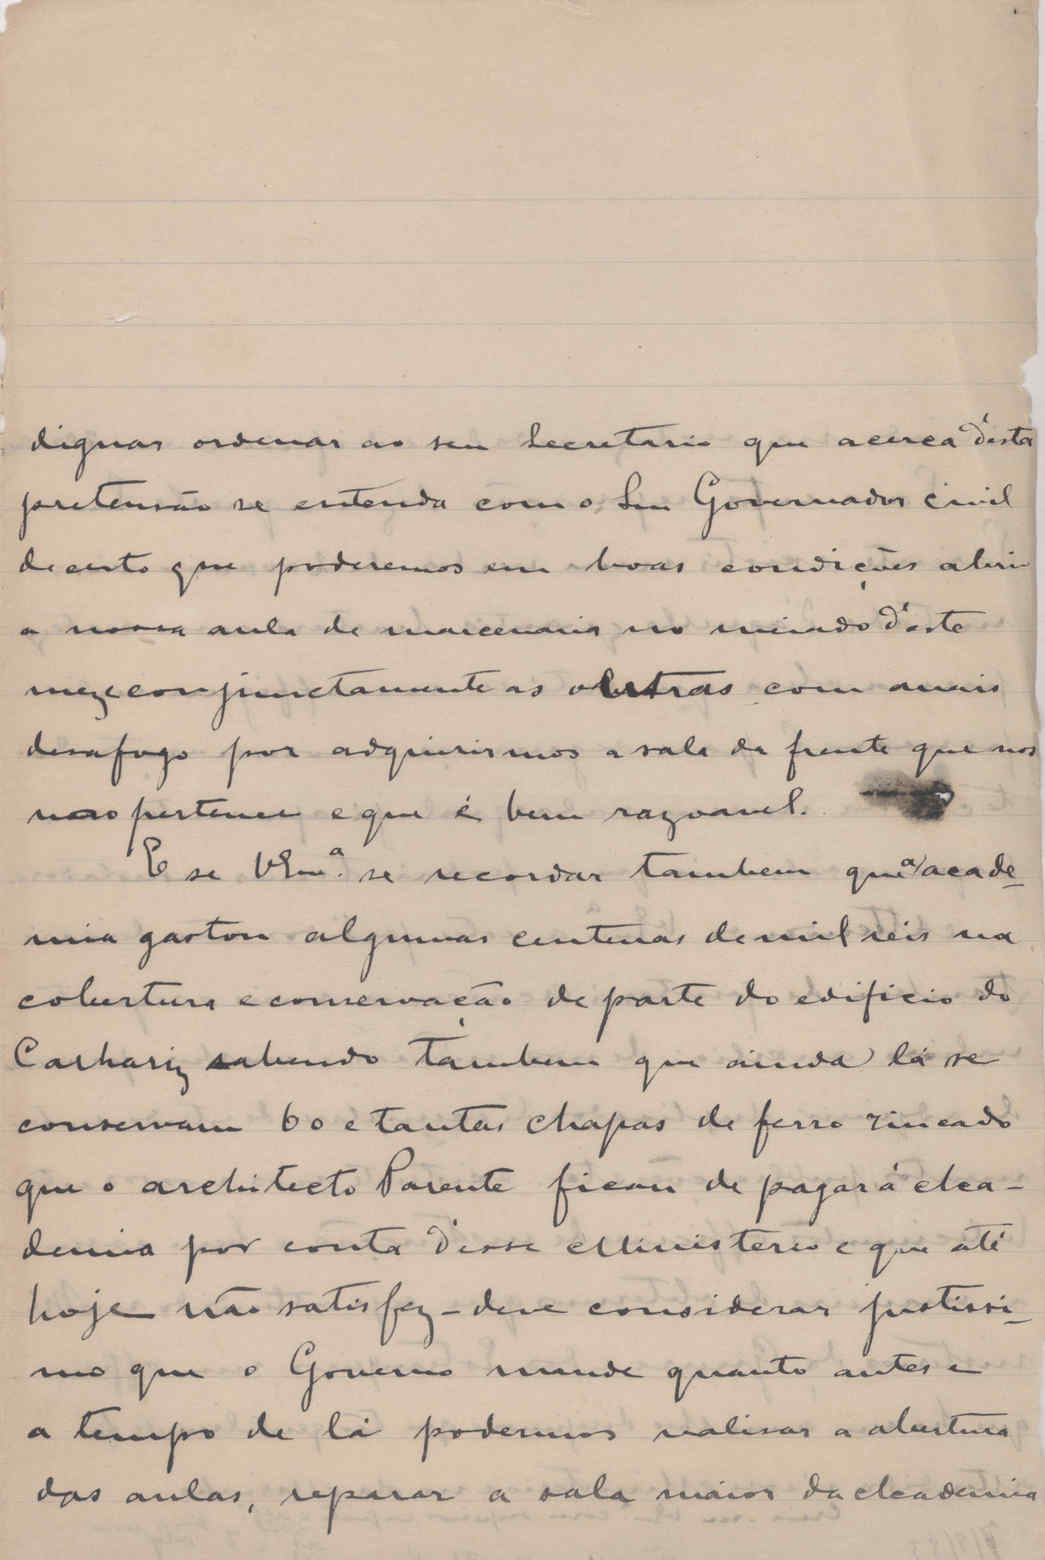 dignar ordenar ao seu Secretario que acerca d'esta
pretensão se entenda com o Snr Governador civil
de certo que poderemos em boas condições abrir
a nossa aula de marcenaria no meiado d'este
mez conjunctamente as outras com mais
desafogo por adquirirmos a sala da frente que nos
não pertence e que é bem razoavel.
E se VExª. se recordar tambem que a acade-
mia gastou algumas centenas de mil réis na
cobertura e conservação de parte do edificio do
Calhariz sabendo tambem que ainda lá se
conservam 60 e tantas chapas de ferro zincado
que o architecto Parente ficou de pagar á Aca-
demia por conta d'esse Ministerio e que até
hoje não satisfez - deve considerar justissi-
mo que o Governo mande quanto antes e
a tempo de lá podermos realisar a abertura
das aulas, reparar a sala maior da Academia